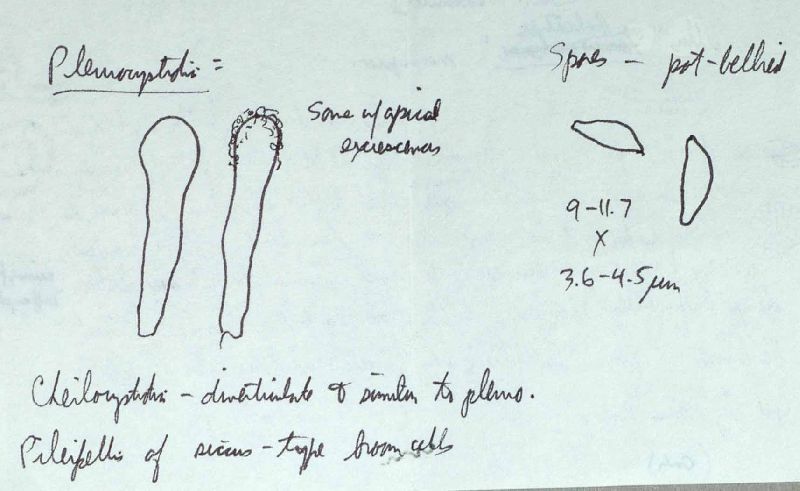 Pleurocystidia =
Some w/ apical
excrescences
Spores – pot-bellied
9–11.7
X
3.6–4.5 µm
Cheilocystidia – diverticulate & similar to pleuro.
Pileipellis of siccus-type broom cells